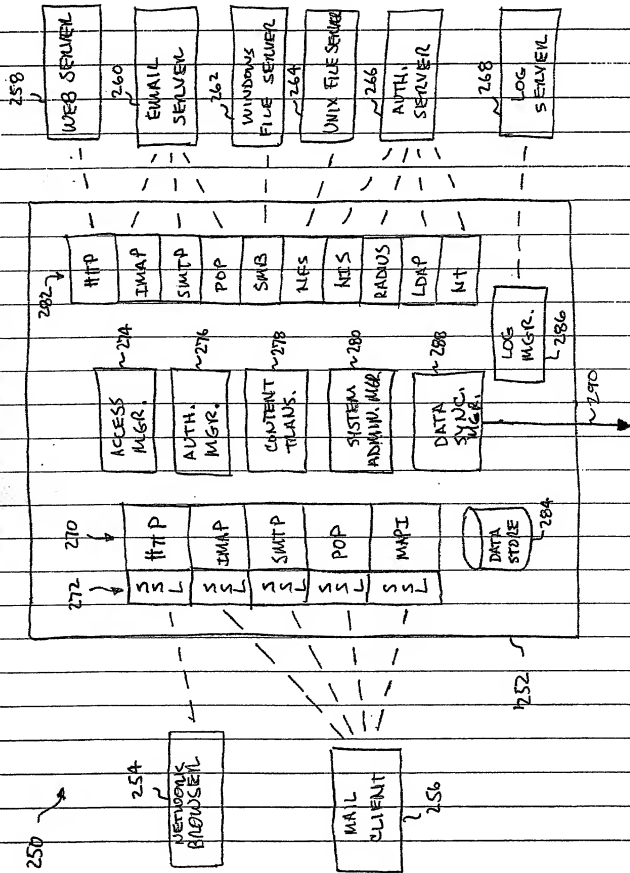 250
254
NETWORK
BROWSER
MAIL
CLIENT
256
252
272
270
SSL
HTTP
SSL
IMAP
SSL
SMTP
SSL
POP
SSL
MAPI
DATA
STORE
284
274
ACCESS
MGR.
276
AUTH.
MGR.
278
CONTENT
TRANS.
280
SYSTEM
ADMIN. MGR
288
DATA
SYNC.
MGR.
290
LOG
MGR.
286
282
HTTP
IMAP
SMTP
POP
SMB
NFS
NIS
RADIUS
LDAP
NT
258
WEB SERVER
260
EMAIL
SERVER
262
WINDOWS
FILE SERVER
264
UNIX FILE SERVER
266
AUTH.
SERVER
268
LOG
SERVER